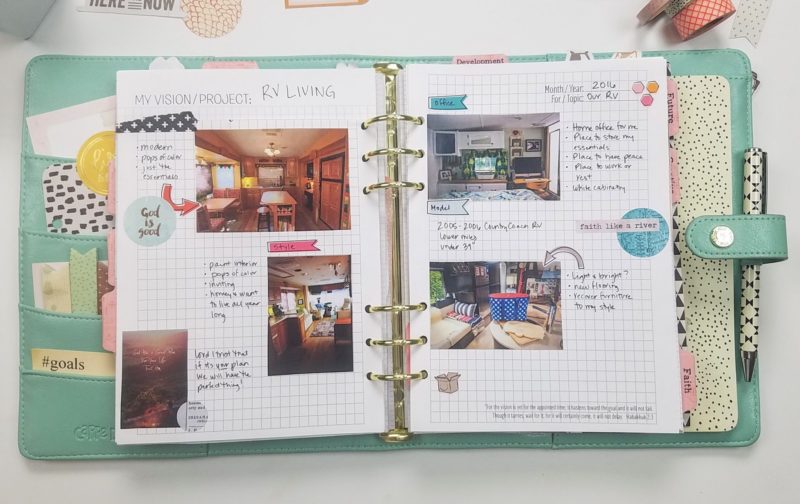 HERE NOW
MY VISION/PROJECT: RV LIVING
• modern
• pops of color
• just the
essentials
God
is
good
Style
• paint interior
• pops of color
• inviting
• homey & want
to live all year
long
#goals
Lord I trust that
if its your plan
We will have the
perfect thing!
Development
Month / Year: 2016
For / Topic: Our RV
Office
• Home office for me
• Place to store my
essentials
• Place to have peace
• Place to work or
rest
• White cabinetry
Model
2005-2006 Country Coach RV
lower miles
under 39'
faith like a river
• light & bright?
• new flooring
• recover furniture
to my style
"For the vision is yet for the appointed time; it hastens toward the goal and it will not fail.
Though it tarries, wait for it; for it will certainly come, it will not delay. -Habakkuk 2:3
Future
Faith